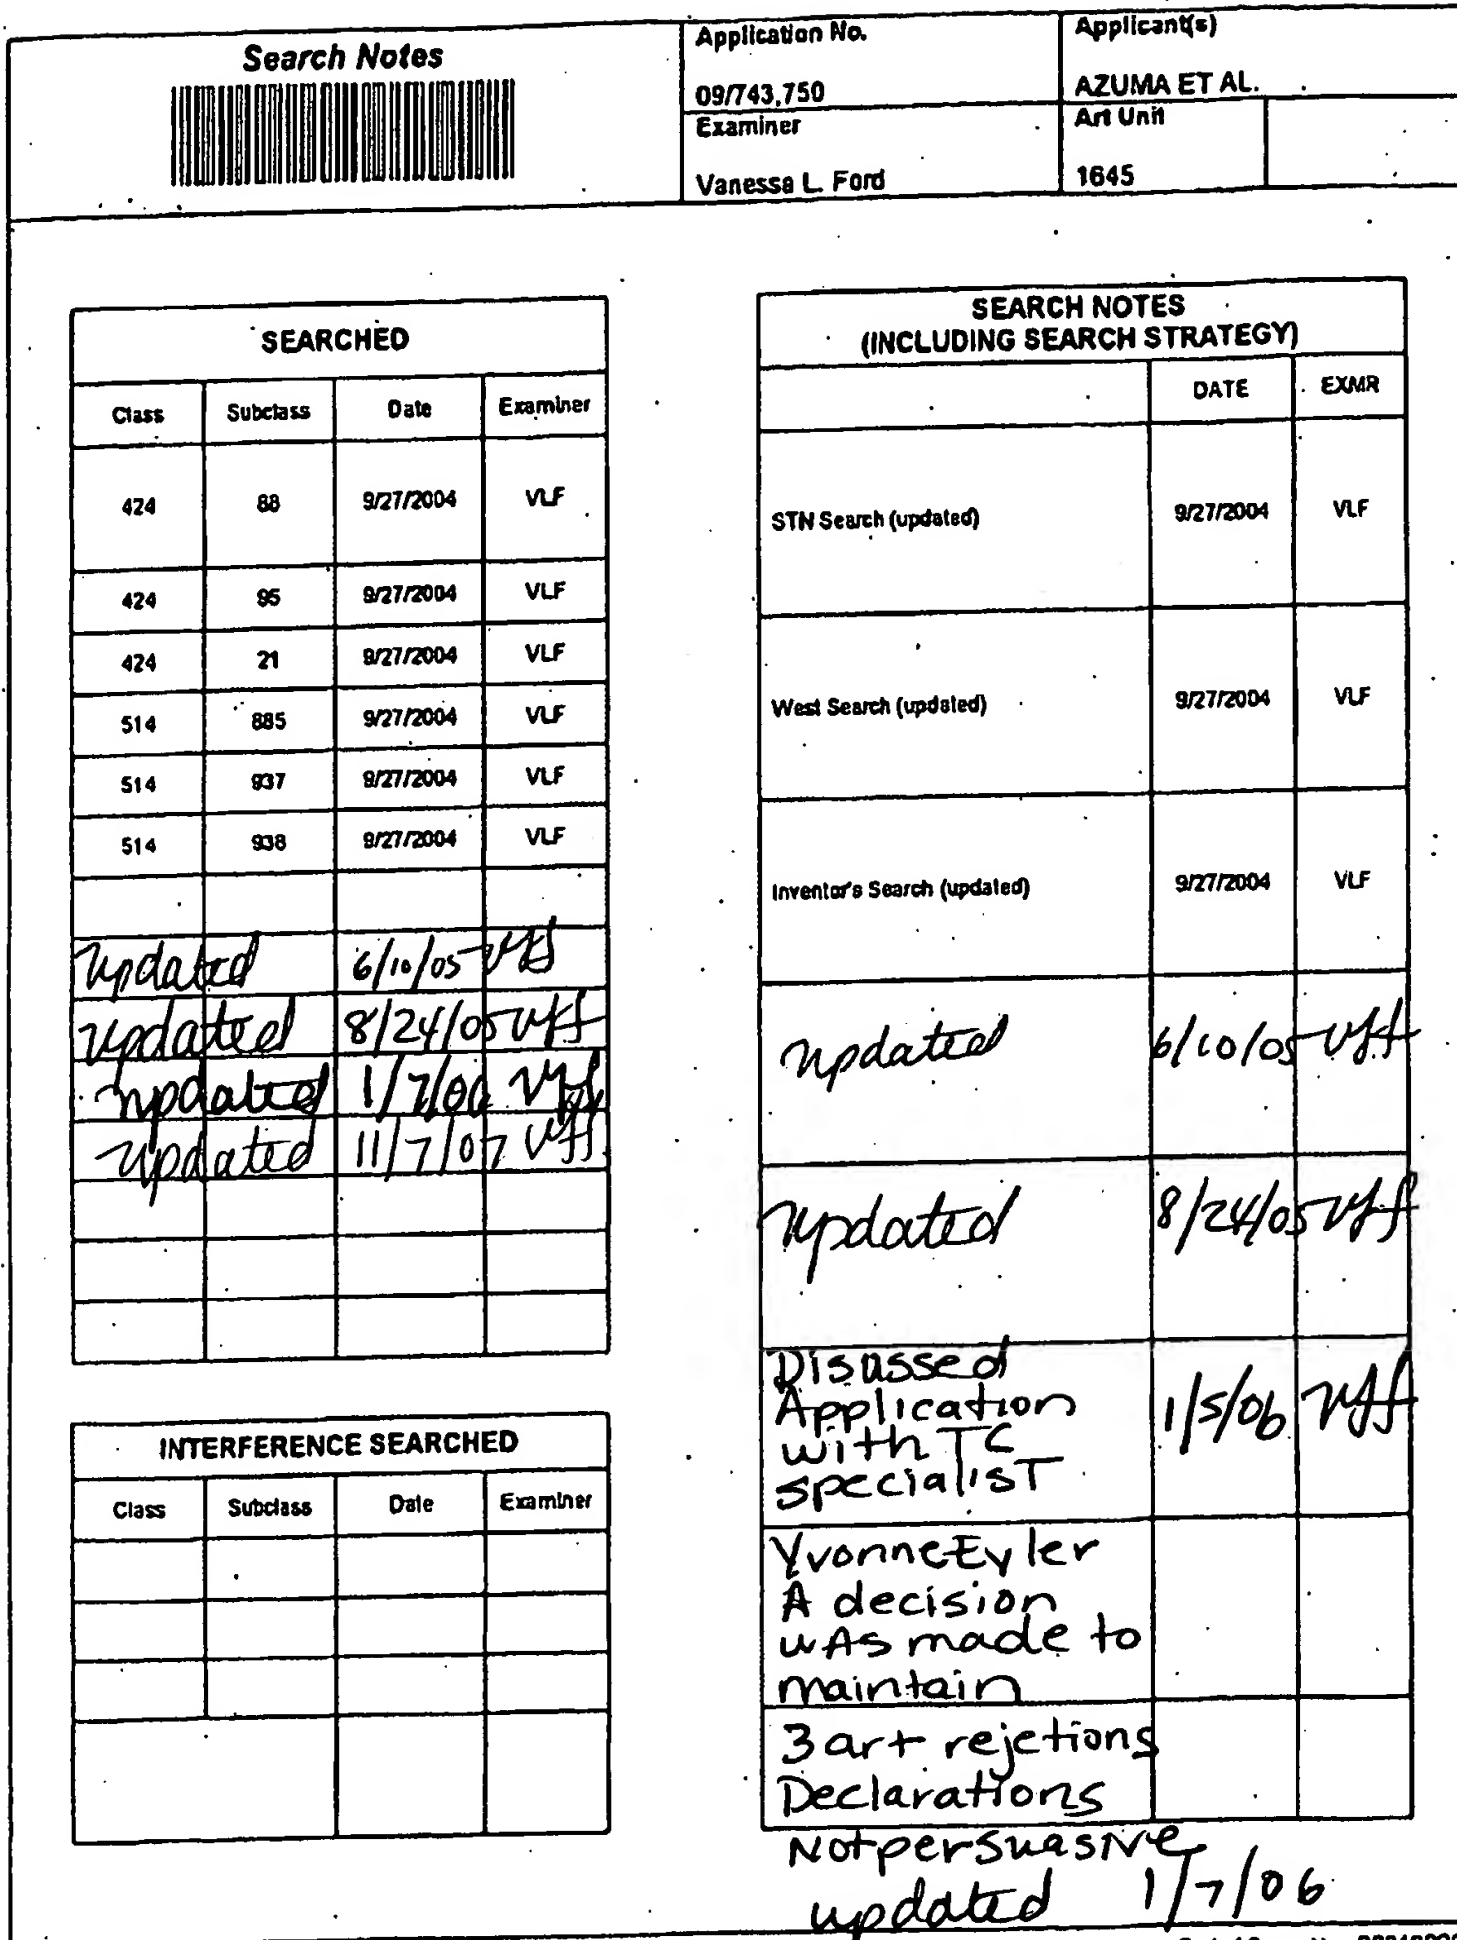 Search Notes
Application No.
09/743,750
Applicant(s)
AZUMA ET AL.
Examiner
Vanessa L. Ford
Art Unit
1645
SEARCHED
Class Subclass Date Examiner
424 88 9/27/2004 VLF
424 95 9/27/2004 VLF
424 21 9/27/2004 VLF
514 885 9/27/2004 VLF
514 937 9/27/2004 VLF
514 938 9/27/2004 VLF
updated 6/10/05 vlf
updated 8/24/05 vlf
updated 1/7/06 vlf
updated 11/7/07 vlf
INTERFERENCE SEARCHED
Class Subclass Date Examiner
SEARCH NOTES
(INCLUDING SEARCH STRATEGY)
DATE EXMR
STN Search (updated) 9/27/2004 VLF
West Search (updated) 9/27/2004 VLF
Inventor's Search (updated) 9/27/2004 VLF
updated 6/10/05 vlf
updated 8/24/05 vlf
Disussed
Application 1/5/06 vlf
with TC
specialist
Yvonne Eyler
A decision
was made to
maintain
3 art rejetions
Declarations
Not persuasive
updated 1/7/06